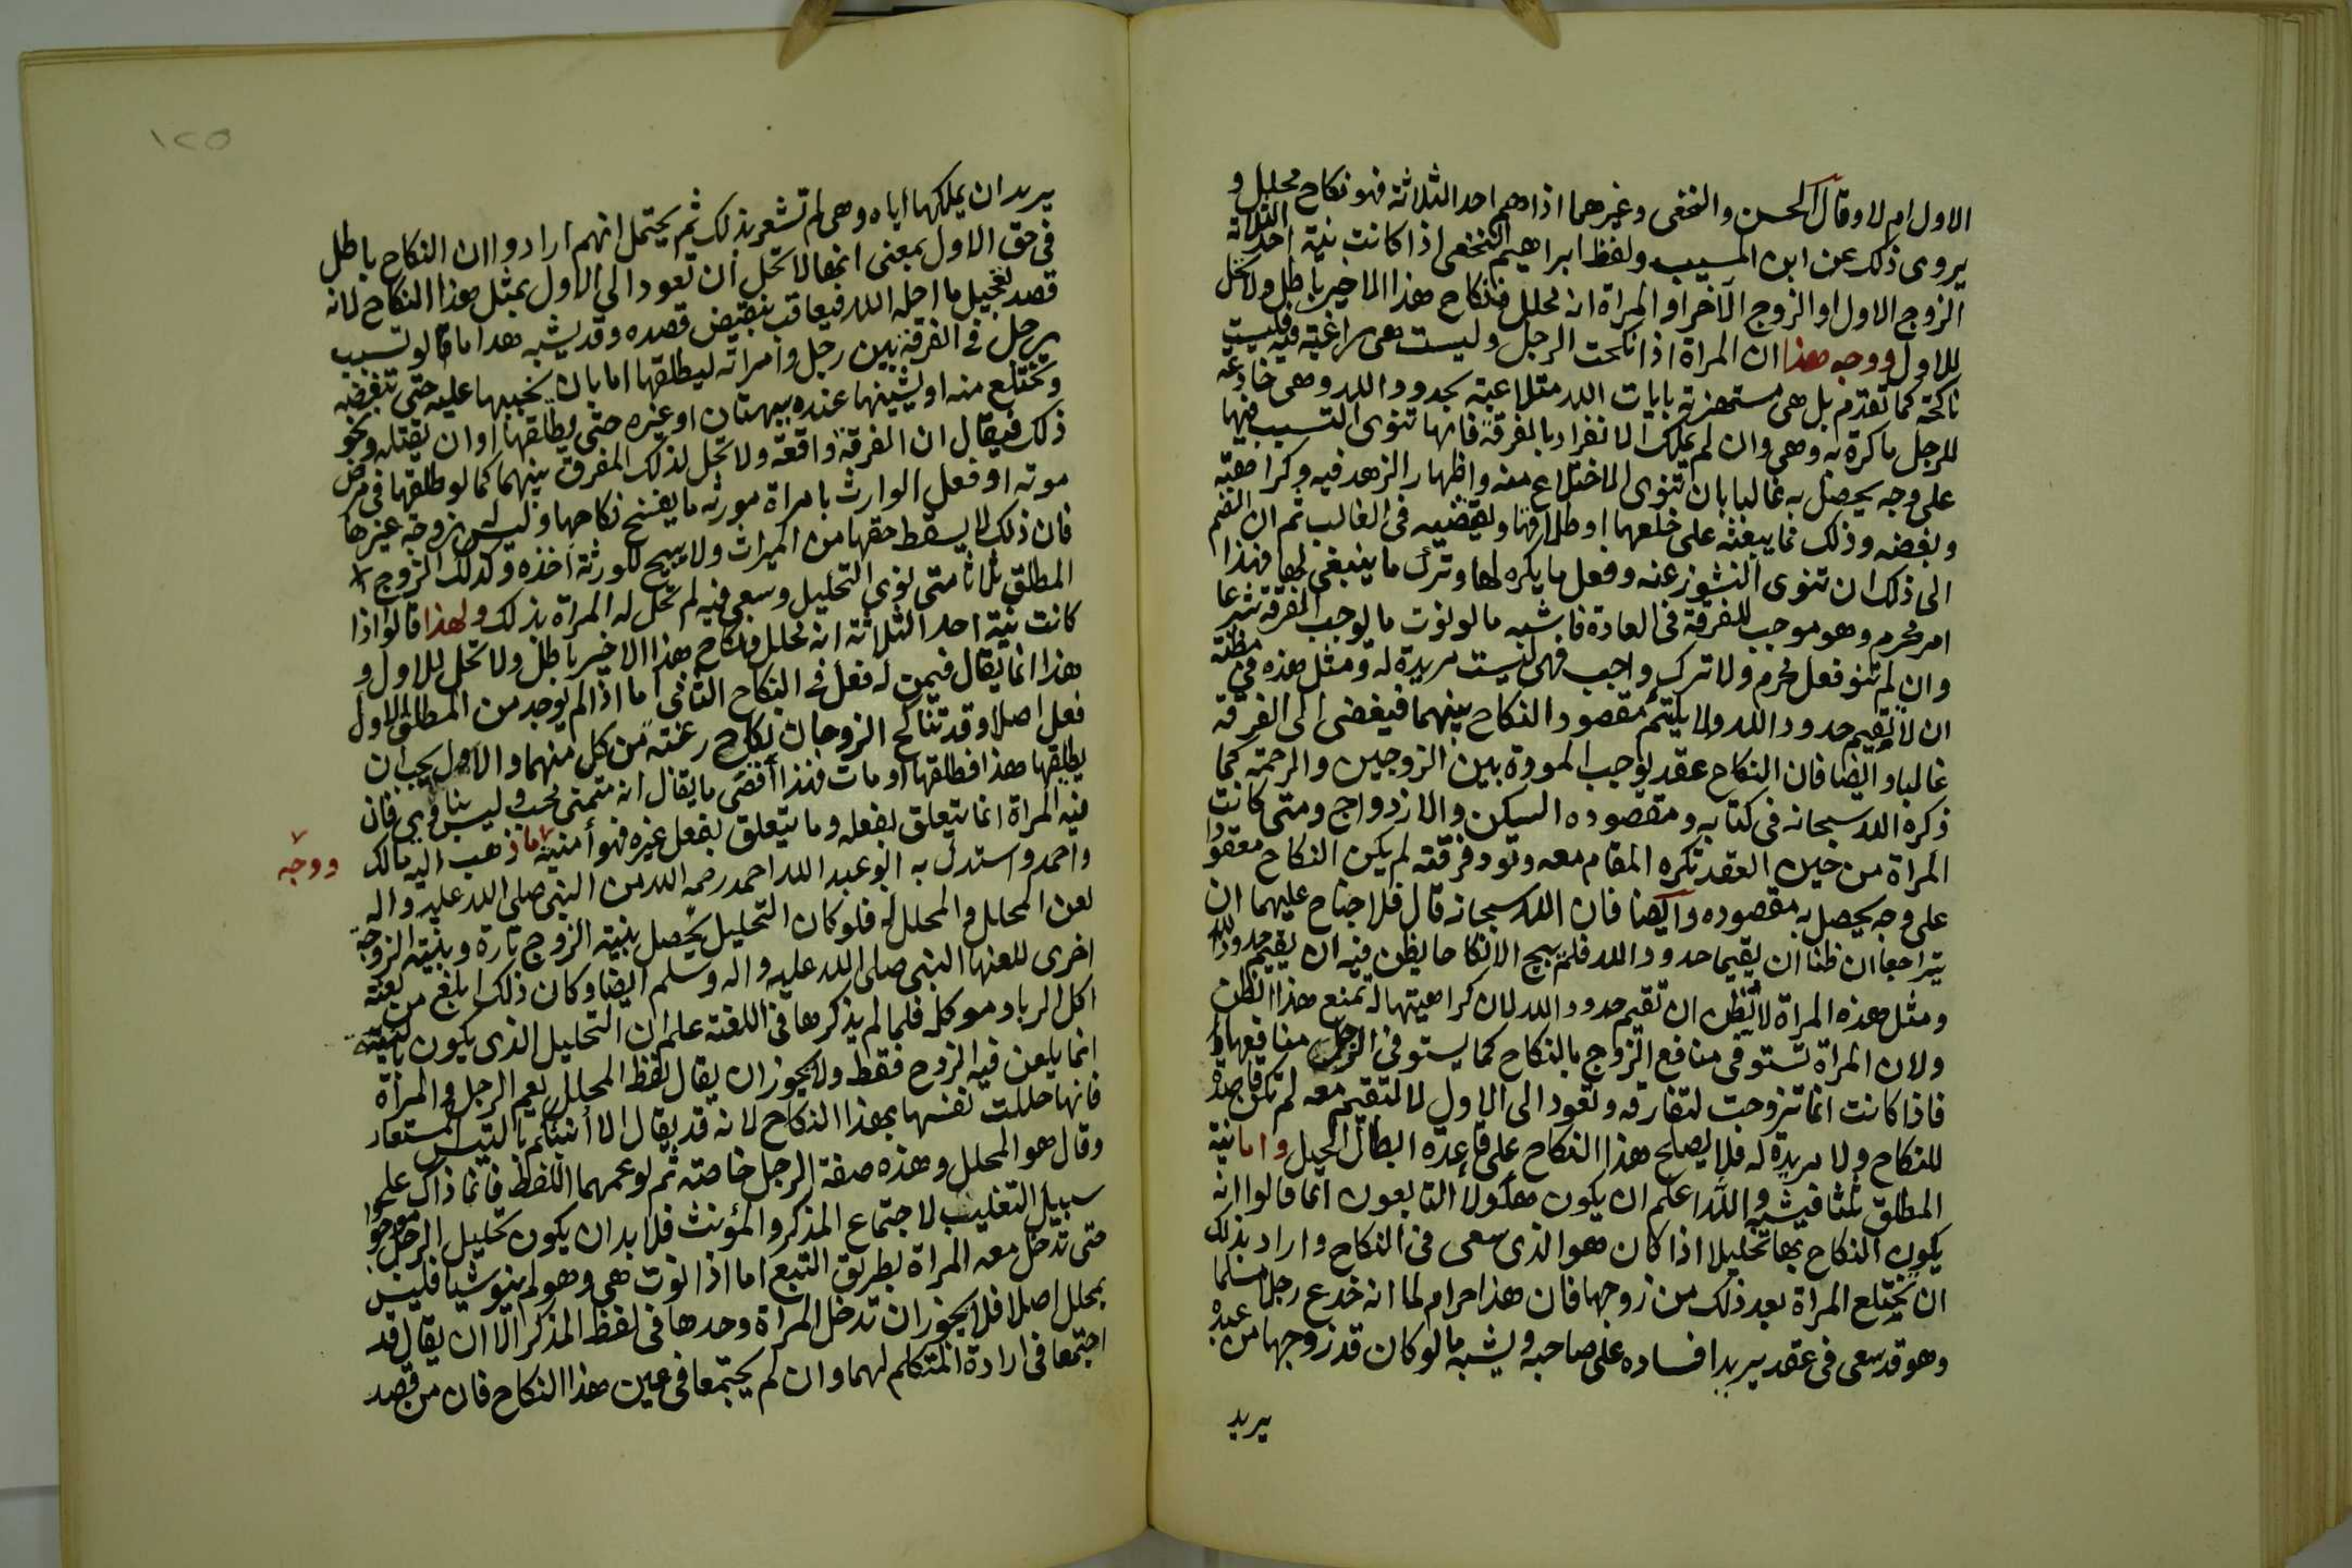 الاول ام لا وقال الحسن والنخعي وغيرهما اذا هم احد الثلاثة فهو نكاح محلل و
يروى ذلك عن ابن المسيب ولفظ ابراهيم النخعي اذا كانت نية احد الثلاثة
الزوج الاول او الزوج الآخر او المرأة انه محلل فنكاح هذا الاخير باطل ولا تحل
للاول ووجه هذا ان المرأة اذا نكحت الرجل وليست هي راغبة فيه فليست
ناكحة كما تقدم بل هي مستهزئة بايات الله متلاعبة بحدود الله وهي خادعة
للرجل ماكرة به وهي وان لم تملك الانفراد بالفرقة فانها تنوى التسبب فيها
على وجه يحصل به غالبا بان تنوى الاختلاع منه واظهار الزهد فيه وكراهته
وبغضه وذلك مما يبعثه على خلعها او طلاقها ويقتضيه في الغالب ثم ان انضم
الى ذلك ان تنوى النشوز عنه وفعل ما يكره لها وترك ما ينبغي لها فهذا
امر محرم وهو موجب للفرقة في العادة فاشبه ما لو نوت ما يوجب الفرقة شرعا
وان لم تنو فعل محرم ولا ترك واجب فهي ليست مريدة له ومثل هذه في مظنة
ان لا تقيم حدود الله ولا يلتئم مقصود النكاح بينهما فيفضي الى الفرقة
غالبا وايضا فان النكاح عقد يوجب المودة بين الزوجين والرحمة كما
ذكره الله سبحانه في كتابه ومقصوده السكن والازدواج ومتى كانت
المرأة من حين العقد تكره المقام معه وتود فرقته لم يكن النكاح معقودا
على وجه يحصل به مقصوده وايضا فان الله سبحانه قال فلا جناح عليهما ان
يتراجعا ان ظنا ان يقيما حدود الله فلم يبح الا نكاحا يظن فيه ان يقيم حدود الله
ومثل هذه المرأة لا تظن ان تقيم حدود الله لان كراهيتها له تمنع هذا الظن
ولان المرأة تستوفي منافع الزوج بالنكاح كما يستوفي الرجل منافعها و
فاذا كانت انما تزوجت لتفارقه وتعود الى الاول لا لتقيم معه لم تكن قاصدة
للنكاح ولا مريدة له فلا يصلح هذا النكاح على قاعدة ابطال الحيل واما نية
المطلق ثلثا فيشبه والله اعلم ان يكون هكولا التابعون انما قالوا انه
يكون النكاح بها تحليلا اذا كان هو الذي سعى في النكاح واراد بذلك
ان تختلع المرأة بعد ذلك من زوجها فان هذا حرام لما انه خدع رجلا مسلما
وهو قد سعى في عقد يريد افساده على صاحبه ويشبه ما لو كان قد زوجها من عبده
يريد
١٢٥
يريد ان يملكها اياه وهي لم تشعر بذلك ثم يحتمل انهم ارادوا ان النكاح باطل
في حق الاول بمعنى انها لا تحل ان تعود الى الاول بمثل هذا النكاح لانه
قصد تعجيل ما احله الله فيعاقب بنقيض قصده وقد يشبه هذا ما لو تسبب
رجل في الفرقة بين رجل وامراته ليطلقها اما بان يخببها عليه حتى تبغضه
وتختلع منه او يشينها عنده ببهتان او غيره حتى يطلقها او ان يقتله ونحو
ذلك فيقال ان الفرقة واقعة ولا تحل لذلك المفرق بينهما كما لو طلقها في مرض
موته او فعل الوارث بامراة مورثه ما يفسخ نكاحها وليس له زوجة غيرها
فان ذلك لا يسقط حقها من الميراث ولا يبيح للورثة اخذه وكذلك الزوج
المطلق ثلاثا متى نوى التحليل وسعى فيه لم تحل له المرأة بذلك ولهذا قالوا اذا
كانت نية احد الثلاثة انه محلل فنكاح هذا الاخير باطل ولا تحل للاول و
هذا انما يقال فيمن له فعل في النكاح الثاني اما اذا لم يوجد من المطلق الاول
فعل اصلا وقد تناكح الزوجان نكاح رغبة من كل منهما والاول يحب ان
يطلقها هذا فطلقها او مات فهذا اقصى ما يقال انه متمنى محب وليس بناوي فان
نية المرأة انما يتعلق بفعله وما يتعلق بفعل غيره فهو أمنية ما ذهب اليه مالك
ووجه
واحمد واستدل به ابو عبد الله احمد رضى الله من النبي صلى الله عليه واله
لعن المحلل والمحلل له فلو كان التحليل يحصل بنية الزوج تارة وبنية الزوجة
اخرى للعنها النبي صلى الله عليه واله وسلم ايضا وكان ذلك ابلغ من لعنة
اكل الربا وموكله فلما لم يذكرها في اللعنة علم ان التحليل الذي يكون بالنية
انما يلعن فيه الزوج فقط ولا يجوز ان يقال لفظ المحلل يعم الرجل والمرأة
فانها حللت نفسها بهذا النكاح لانه قد يقال الا أنبئكم بالتيس المستعار
وقال هو المحلل وهذه صفة الرجل خاصة ثم لو عمهما اللفظ فانما ذاك على
سبيل التغليب لاجتماع المذكر والمؤنث فلا بد ان يكون تحليل الرجل موجودا
حتى تدخل معه المرأة بطريق التبع اما اذا نوت هي وهو لم ينو شيا فليس
بمحلل اصلا فلا يجوز ان تدخل المرأة وحدها في لفظ المذكر الا ان يقال قد
اجتمعا في ارادة المتكلم لهما وان لم يجتمعا في عين هذا النكاح فان من قصد